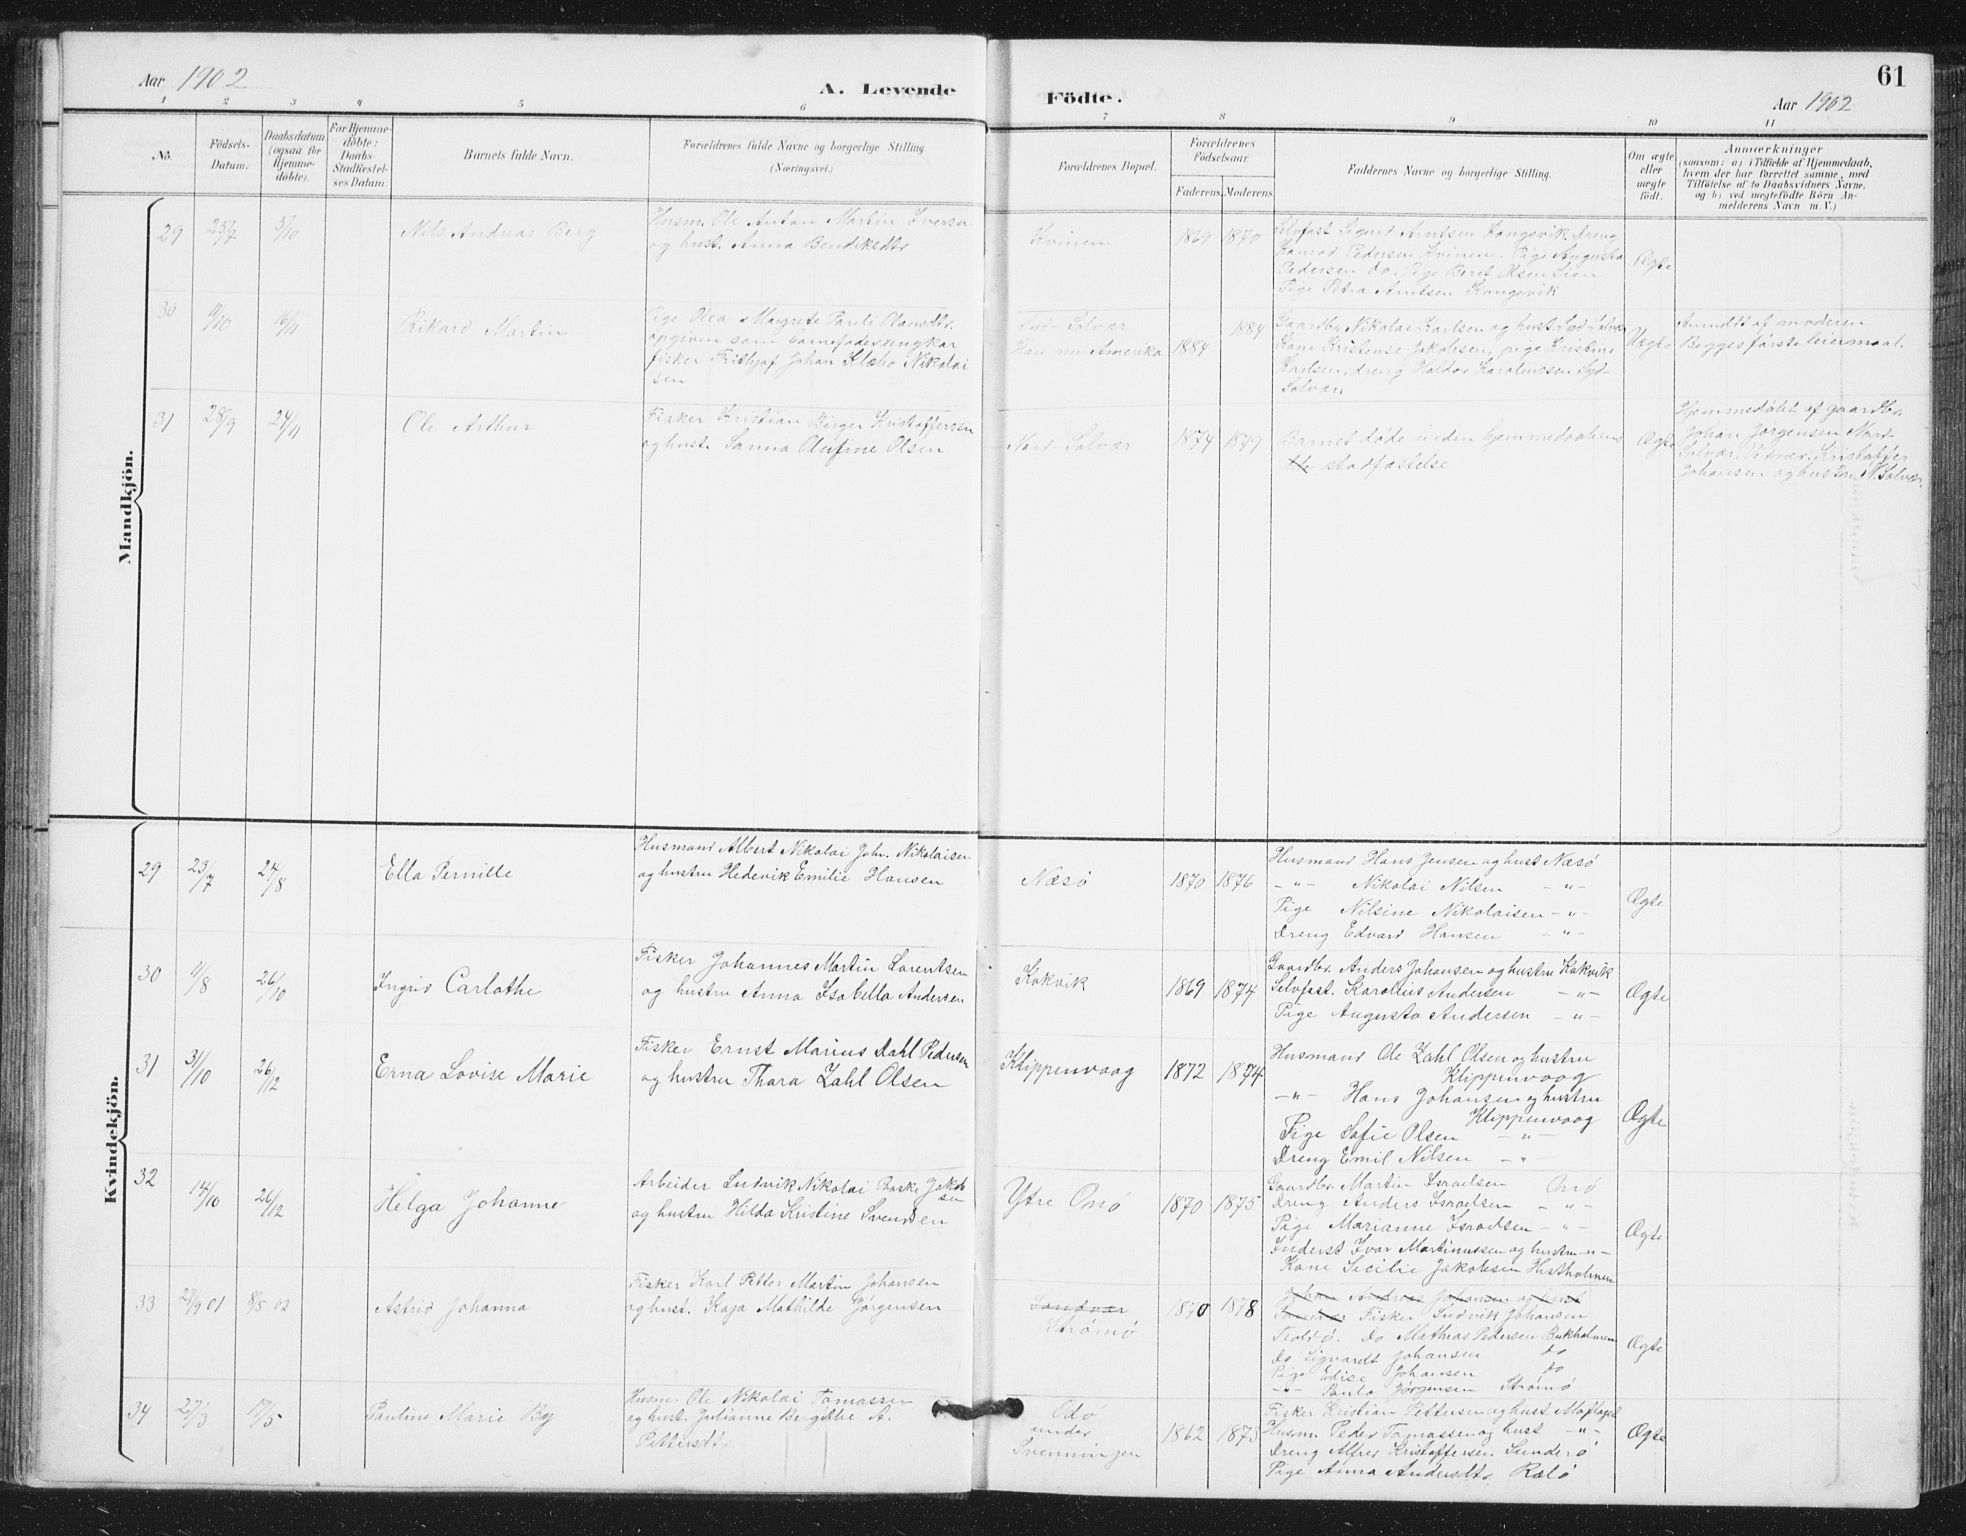 Aar 1902
A. Levende
Födte.
61
Aar 1902
1 2 3 4 5 6 7 8 9 10 11
No.
Födsels-
Datum.
Daabsdatum
(ogsaa for
Hjemme-
döbte).
For Hjemme-
döbte:
Daabs-
Stadfæstel-
ses Datum.
Barnets fulde Navn.
Forældrenes fulde Navne og borgerlige Stilling
(Næringsvei.)
Forældrenes Bopæl.
Forældrenes
Födselsaar.
Faderens. Moderens.
Faddernes Navne og borgerlige Stilling.
Om ægte
eller
uægte
födt.
Anmærkninger
(saasom: a) i Tilfælde af Hjemmedaab,
hvem der har forrettet samme, med
Tilföielse af to Daabsvidners Navne,
og b) ved uægtefödte Börn An-
melderens Navn m. V.)
Mandkjön.
29
3/10
Nils Andreas Berg
Husm. Ole Anton Martin Iversen
og hust. Anna Bendiksdtr
Kvinen
1869 1870
Selvfast Sigurd Arntsen Kongsvik. Dreng
Konrad Pedersen Kvinen. Pige Augusta
Pedersen do. Pige Beret Olsen Lien
Pige Petra Arntsen Kongsvik
Ægte
30
11/10
16/11
Rikard Martin
Pige Olea Margrete Pauli Olausdtr.
opgiven som barnefader ungkar
fisker Frithjof Johan Klæbo Nikolai
sen
Syd-Solvær
Amerika
1884
1884
Gaardbr. Nikolai Karlsen og hust. Syd-Solvær
Kone Kristense Jakobsen, pige Kristine
Karlsen, dreng Haldor Karoliussen Syd-
Solvær.
Uægte
Anmeldt af moderen
Begges förste leiermaal.
31
28/9
24/11
Ole Arthur
Fisker Kristian Birger Kristoffersen
og hust. Sanna Olufine Olsen
Nord-Solvær
1874 1879
Barnet döde inden hjemmedaabens
stadfæstelse
Ægte
Hjemmedöbt af gaardbr.
Johan Jörgensen Nord-
Solvær. Vidner: Kristoffer
Johansen og hustru N. Solvær.
Kvindekjön.
29
23/7
24/8
Ella Pernille
Husmand Albert Nikolai Joh. Nikolaisen
og hustru Hedevik Emilie Hansen
Næsö
1870 1876
Husmand Hans Jensen og hust Næsö
-"- Nikolai Nilsen -"-
Pige Nilsine Nikolaisen -"-
Dreng Edvard Hansen -"-
Ægte
30
11/8
26/10
Ingrid Carlothe
Fisker Johannes Martin Lorentsen
og hustru Anna Isabella Andersen
Kokvik
1869 1874
Gaardbr. Anders Johansen og hustru Kokvik
Selvfast. Karolius Andersen -"-
Pige Augusta Andersen -"-
Ægte
31
31/10
26/12
Erna Lovise Marie
Fisker Ernst Marius Dahl Pedersen
og hustru Thara Zahl Olsen
Klippenvaag
1872 1874
Husmand Ole Zahl Olsen og hustru
Klippenvaag
-"- Hans Johansen og hustru
Klippenvaag
Pige Sofie Olsen -"-
Dreng Emil Nilsen -"-
Ægte
32
14/10
26/12
Helga Johanne
Arbeider Ludvik Nikolai Baske Jakob
sen
og hustru Hilda Kristine Svendsen
Ytre Onö
1870 1875
Gaardbr. Martin Israelsen Onö
Dreng Anders Israelsen -"-
Pige Marianne Israelsen -"-
Inderst Ivar Martinussen og hustru -"-
Kone Secilie Jakobsen Hestholmen
Ægte
33
27/9 01
8/5 02
Astrid Johanna
Fisker Karl Petter Martin Johansen
og hust. Kaja Mathilde Jörgensen
Sandvær
Strömö
1870 1878
Johan Andreas Johansen og hust
Fisker Ludvik Johansen
Troldö. Do Mathias Pedersen Bukholmen
Do Sigvardt Johansen do
Pige Edise Johansen do
-"- Paula Jörgensen Strömö
Ægte
34
27/3
17/5
Pauline Marie By
Husm. Ole Nikolai Tomassen
og hust. Julianne Bergitte A.
Pettersdtr.
Odö
under
Svenningen
1862 1873
Fisker Kristian Pettersen og hust.
Husm. Peder Tomassen og hust -"-
Dreng Alfred Kristoffersen Sunderö
Pige Anna Andersdtr. Rölö
Ægte